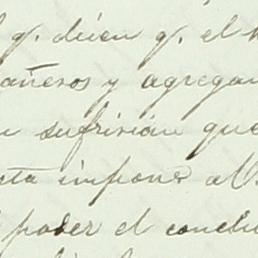 q. dicen q. el
añeros y agregan
sufririan que
impone al
poder el conclu